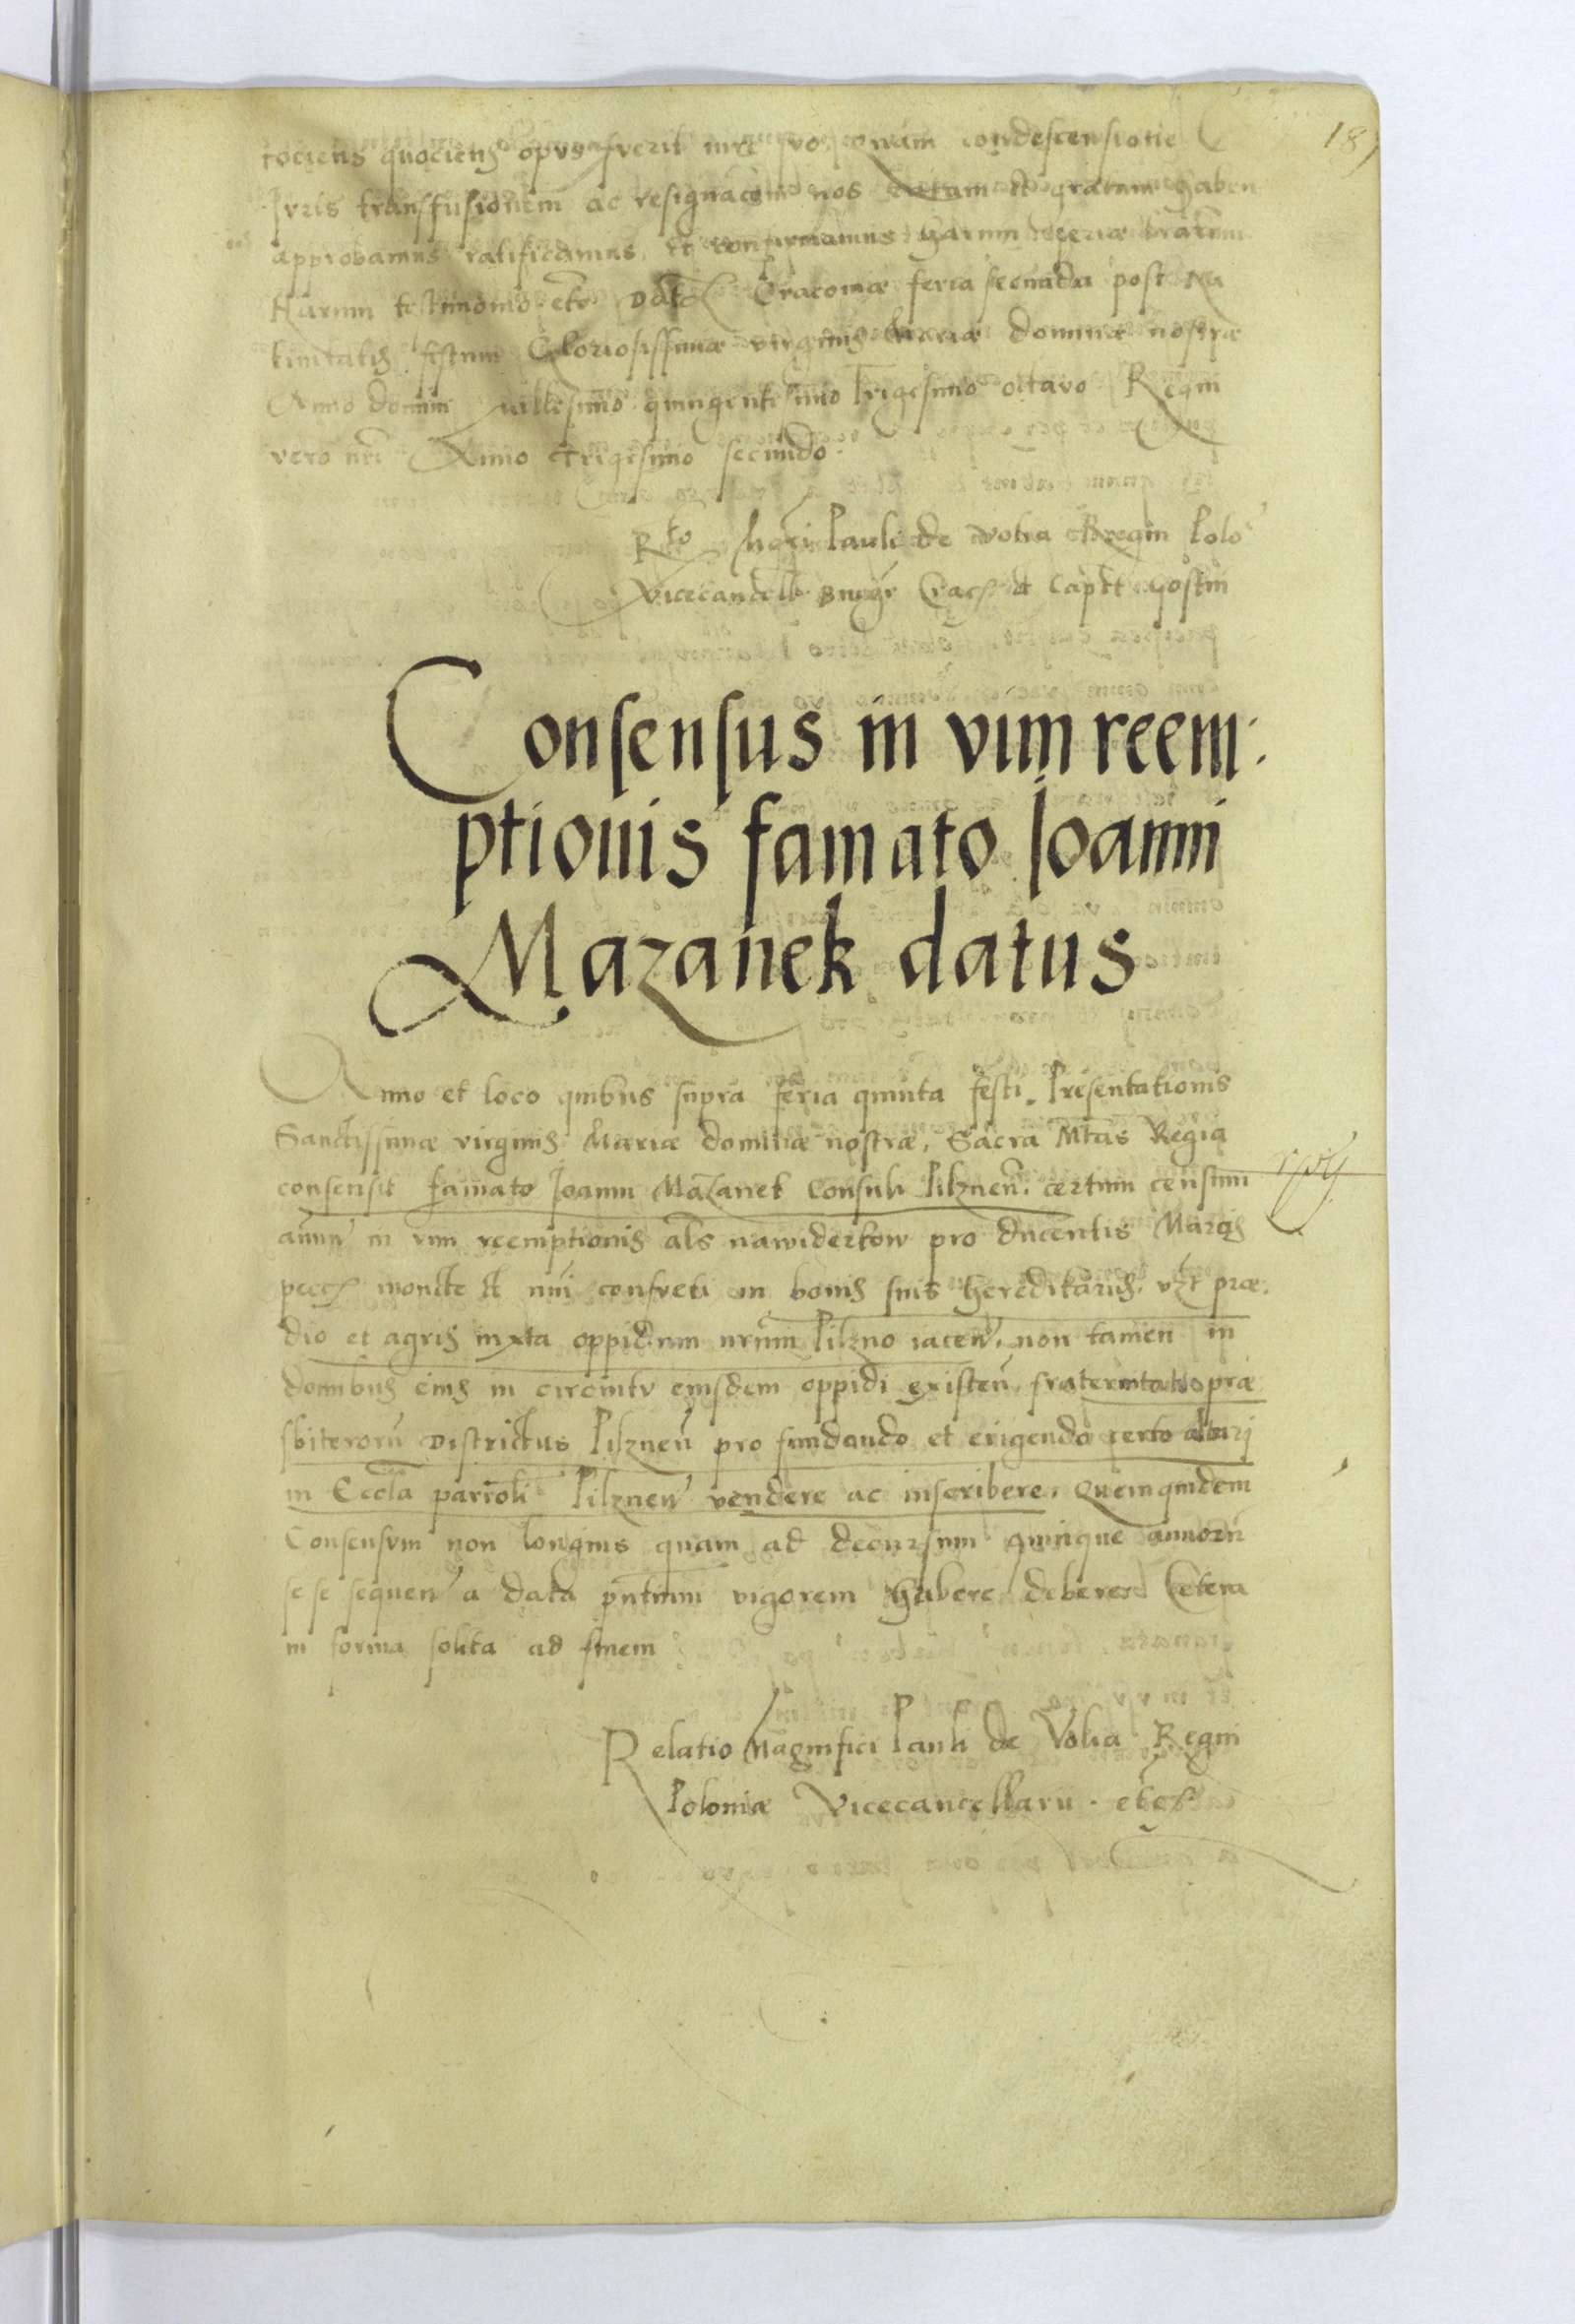 187
tociens quociens opus fuerit
Juris transfusionem ac resignacoem nos ratam et gratam haben
approbamus ratificamus et confirmamus harum serie lrarum
Harum testimonio etc Dat Cracoviæ feria secunda post Na
tivitatis festum Gloriosissimæ virginis Mariæ dominæ nostræ
Anno domini millesimo quingentesimo Trigesimo octavo Regni
vero nri Anno trigesimo secundo.
Rto Mgci Pauli de Volia Regni Polo
Vicecancell Burgr Crac et Capit Gostin
Consensus in vim reem
ptionis famato Joanni
Mazanek datus
Anno et loco quibus supra feria quinta festi Presentationis
Sanctissimæ virginis Mariæ dominæ nostræ, Sacra Mtas Regia
consensit famato Joanni Mazanek Consuli Pilznen. certum censum
annuu in vim reemptionis als nawiderkow pro ducentis Marcis
pecc monete et nui consueti in bonis suis hereditariis, vzt præ
dio et agris iuxta oppidum nrum Pilzno iacen. non tamen in
domibus eius in circuitu eiusdem oppidi existen, fraternitati præ
sbiterorū Districtus Pilznen pro fundando et erigendo certo altarj
in Eccla parroli Pilznen vendere ac inscribere. Quemquidem
Consensum non longius quam ad decursum quinque annorū
se se sequen a data pntium vigorem habere debere Cetera
in forma solita ad finem
Relatio Magnifici Pauli de Volia Regni
Poloniæ Vicecancellarii . etc